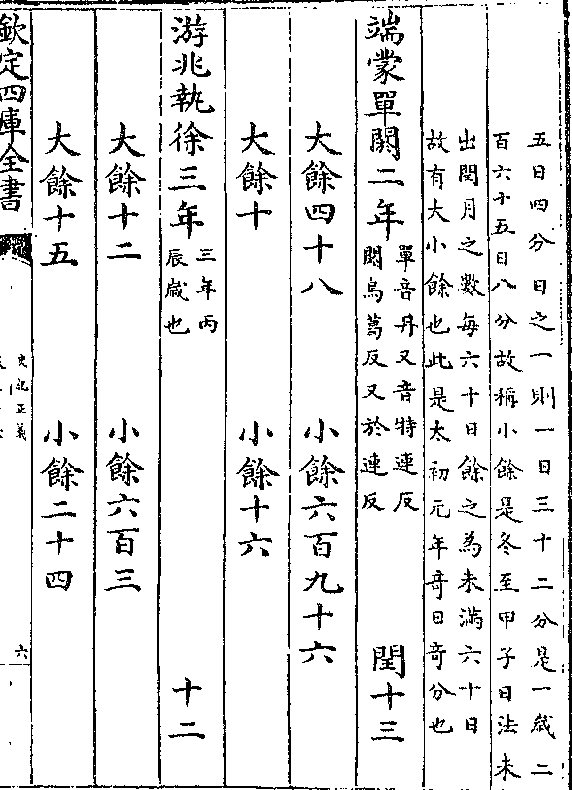 五日四分日之一則一日三十二分是一歲二
百六十五日八分故稱小餘是冬至甲子日法未
出閏月之數每六十日餘之為未滿六十日
故有大小餘也此是太初元年竒日竒分也
端蒙單閼二年單音丹又音特連反
閼烏葛反又於連反
閏十三
大餘四十八 小餘六百九十六
大餘十 小餘十六
游兆執徐三年三年丙
辰歲也
十二
大餘十二 小餘六百三
大餘十五 小餘二十四
欽定四庫全書
史記正義
六